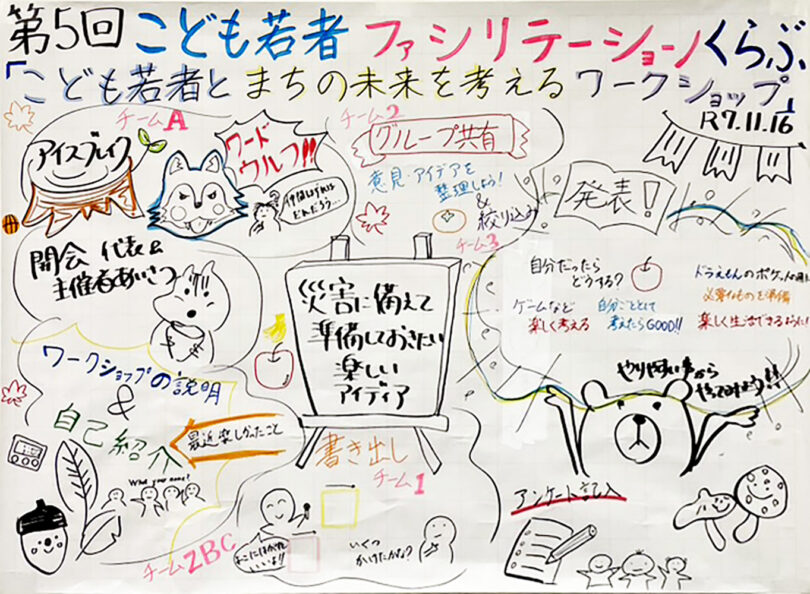 第5回 こども若者 ファシリテーションくらぶ
「こども若者と まちの未来を考える ワークショップ」
R7.11.16
チームA
アイスブレイク
ワード
ウルフ!!
開会 代表&
主催者あいさつ
ワークショップの説明
&
自己紹介
最近楽しかったこと
What your name?
チームZBC
チーム2
グループ共有
意見・アイデアを
整理しよう!
&
絞り込み
チーム3
災害に備えて
準備しておきたい
楽しい
アイディア
書き出し
チーム1
ここにはがれば
いいよ!!
いくつ
かけたかな?
発表!
自分だったら
どうする?
ゲームなど
楽しく考える
自分ごととして
考えたらGOOD!!
ドラえもんのポケットの用に
必要なものを準備
楽しく生活できるように!
やりやすい事から
やってみよう!!
アンケート記入